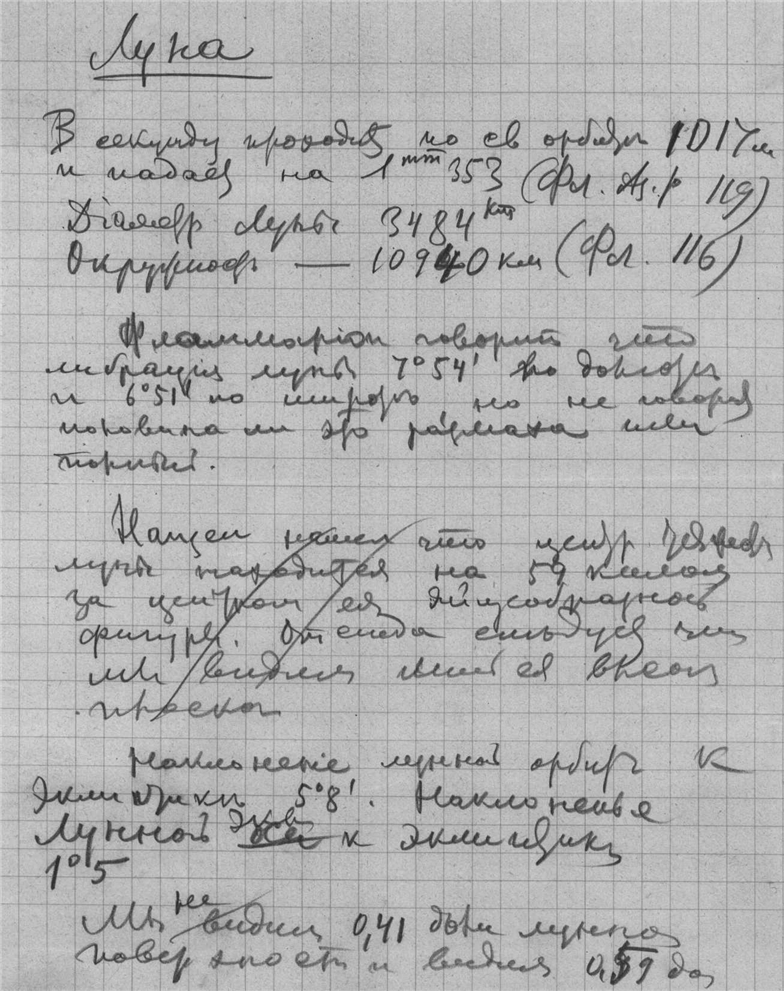 Луна
В секунду проходит по ея орбите 1017 м
и падает на 1 mm 353 (Фл. Аз.р 119)
Діаметр Луны 3484 km
Окружность — 10940 км (Фл. 116)
Фламмаріон говорит что
либрація луны 7°54' по долготе
и 6°51' по широте но не говорит
половина ли это размаха или
полный.
Ганзен нашел что центр тяжести
луны находится на 59 километ
за центром ея яйцеобразной
фигуры. Отсюда следует что
мы видим лишь ея
плоской
Наклоненіе лунной орбиты к
эклиптики 5°8'. Наклоненье
Лунной экв к эклиптики
1°5
Мы не видим 0,41 доли лунной
поверхности и видим 0,59 до